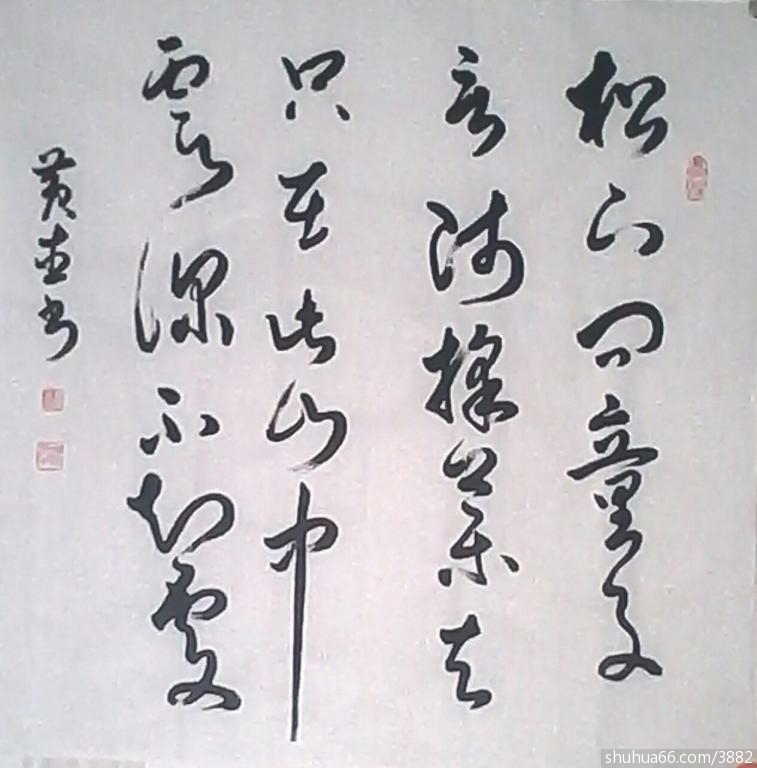 松下问童子
言师采药去
只在此山中
云深不知处
黄
书
shuhua66.com/3882